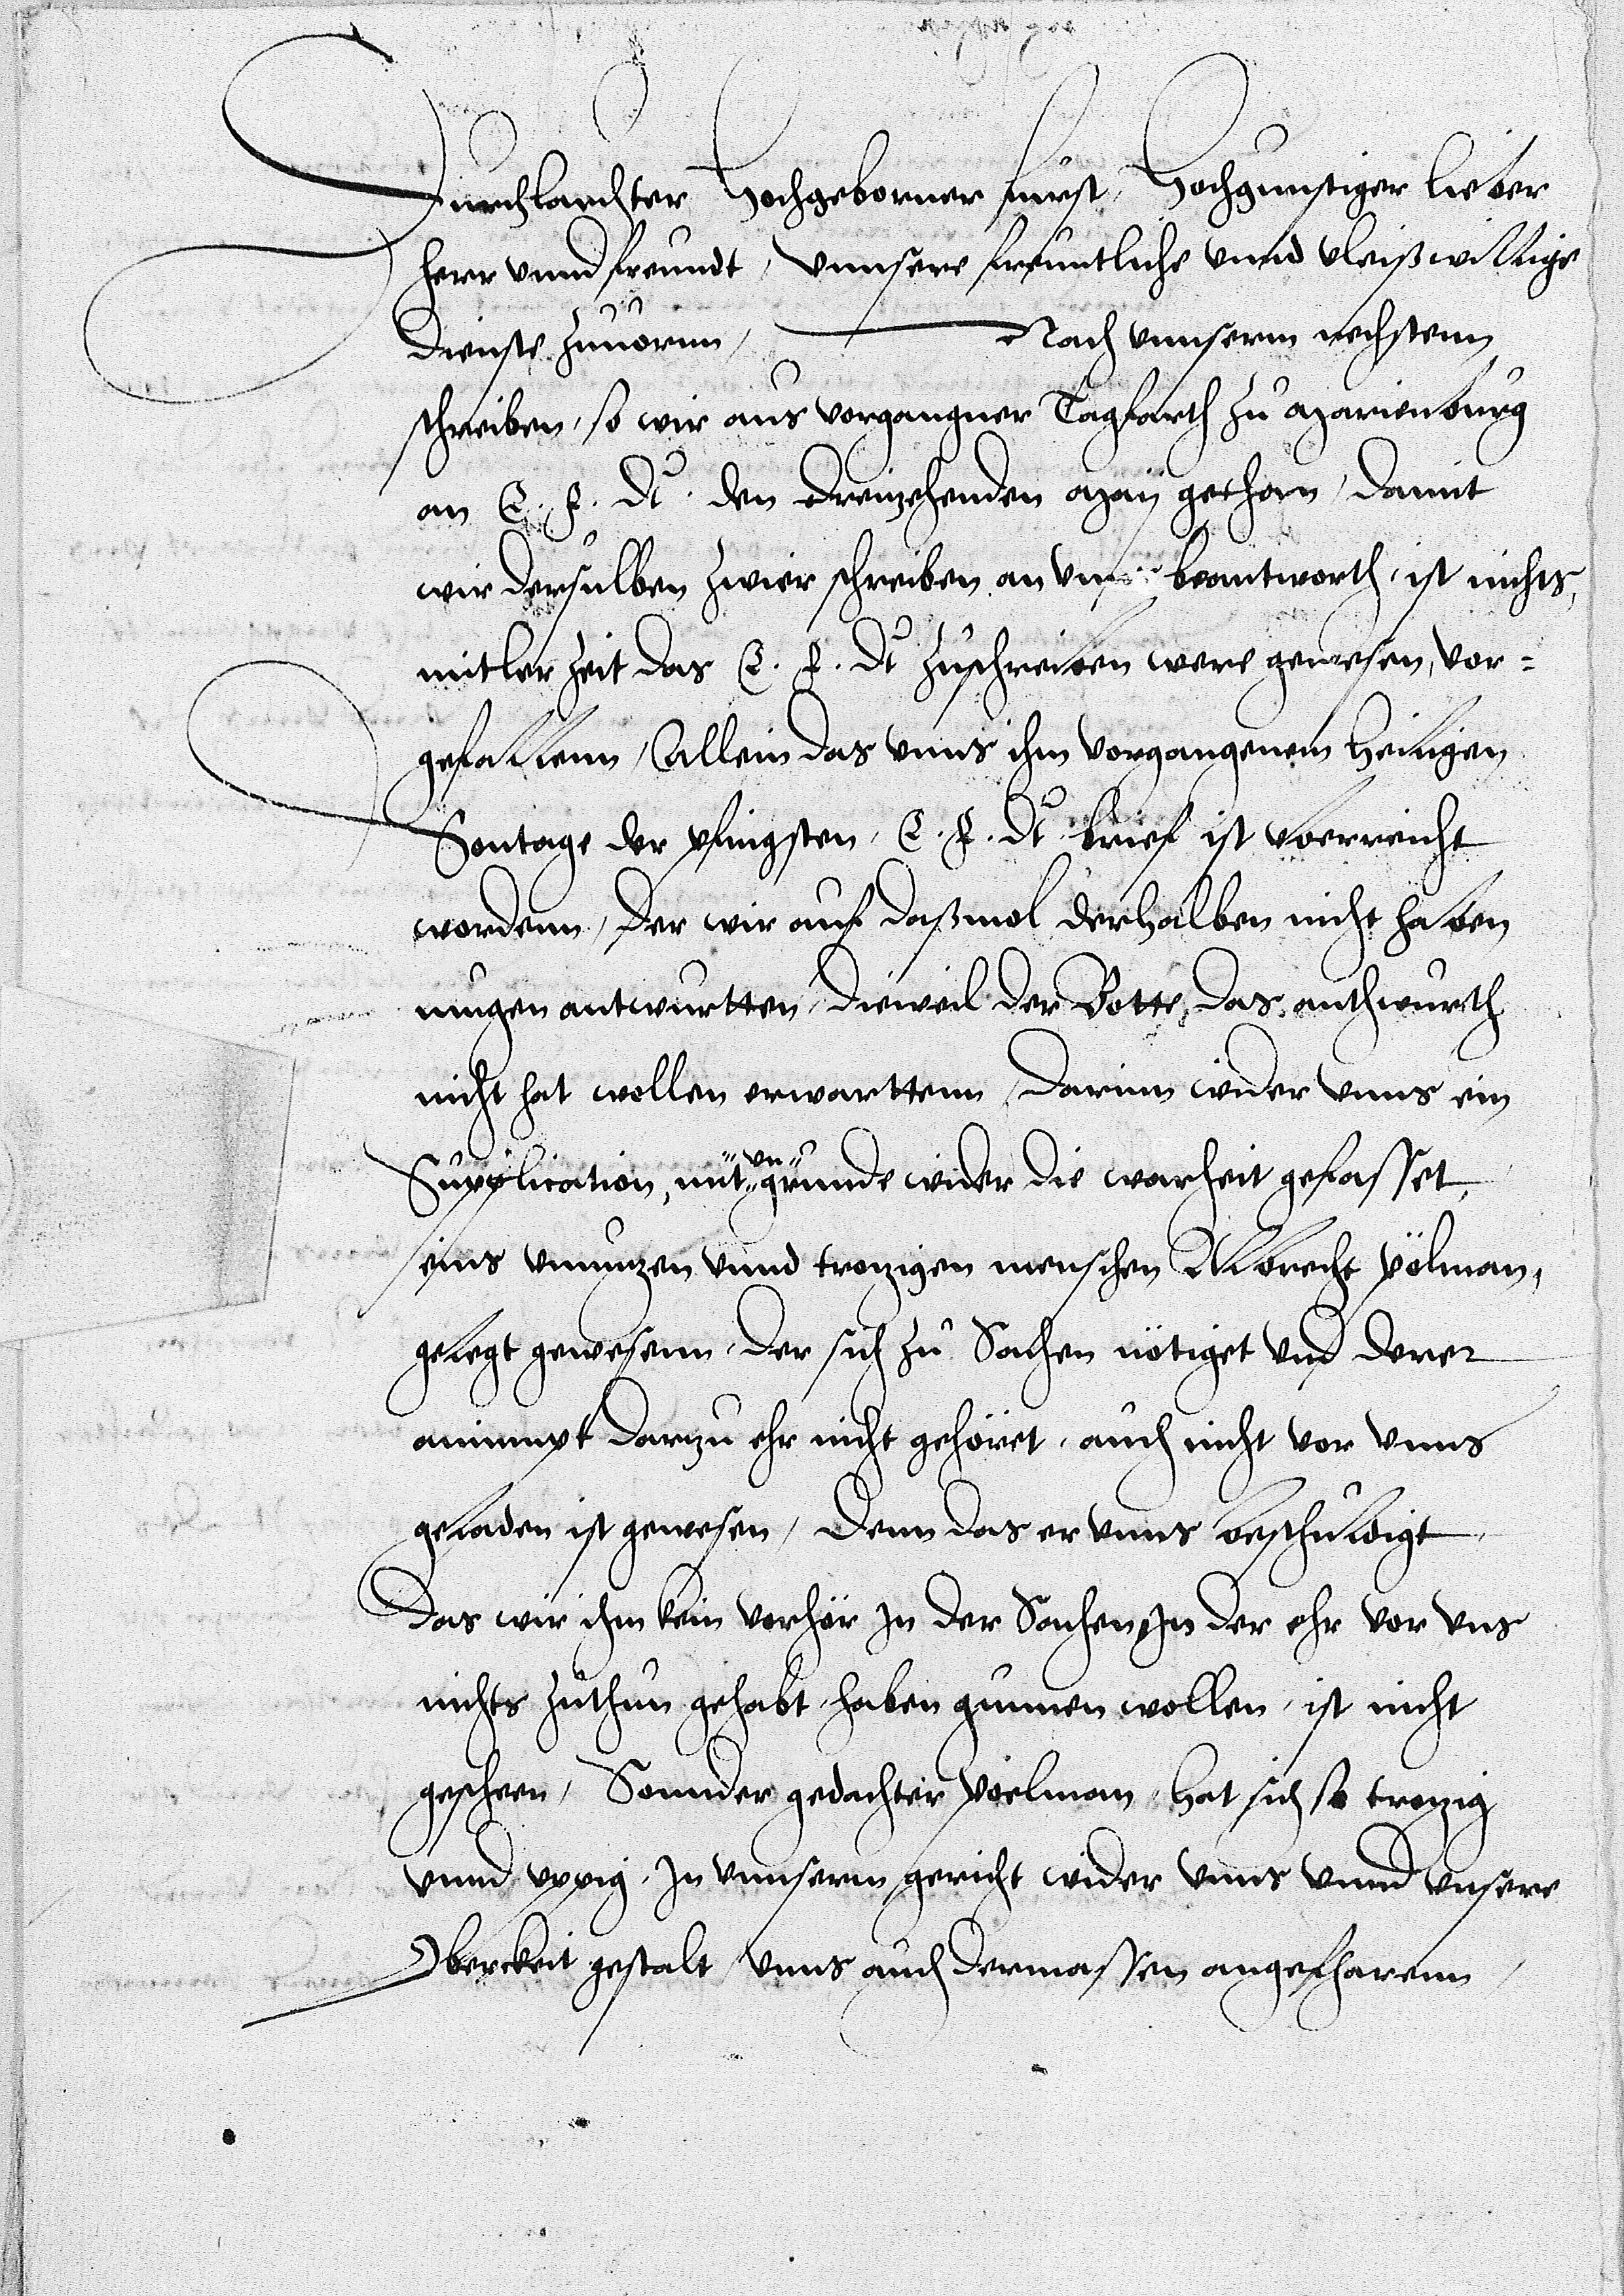 Durchlauchter Hochgeborner fürst, Hochgunstiger lieber
Herr vnnd freundt, Vnnsere freuntliche vnnd vleißwillige
dienste zuuornn, Nach vnnserm nechstenn
schreiben, so wir aus vorgangner Tagfarth zu Marienburg
an E. f. dt. den dreizehenden Maij gethan, damit
wir derselben zwier schreiben an vnns beantworth, ist nichts,
mitler Zeit das E. f. dt zuschreiben were gewesen, vor=
gefallenn, Allein das vnns ihm vorgangenem heiligen
Sontage der pfingsten, E. f. dt brief ist vberreicht
wordenn, Der wir auf daßmol derhalben nicht haben
mugen antwurtten, dieweil der Botte, das anthwurth
nicht hat wollen erwarttenn, Darinn wider vnns ein
Supplication, mit vngrunde wider die warheit gefasset,
eins vnnuzen vnnd trozigen menschen Albrecht pölman,
gelegt gewesenn, der sich zu Sachen nötiget vnd derer
animmpt darzu ehr nicht gehöret, auch nicht vor vnns
geladen ist gewesen, Denn das er vnns beschuldigt,
Das wir ihm kein verhör In der Sachen, In der ehr vor vns
nichts zuthun gehabt, haben gunnen wollen, ist nicht
gescheen, Sonnder gedachter poelman, hat sich so trozig
vnnd vppig, In vnnserm gericht wider vnns vnnd vnsere
Oberckeit gestalt, vnns auch dermassen angefharenn,